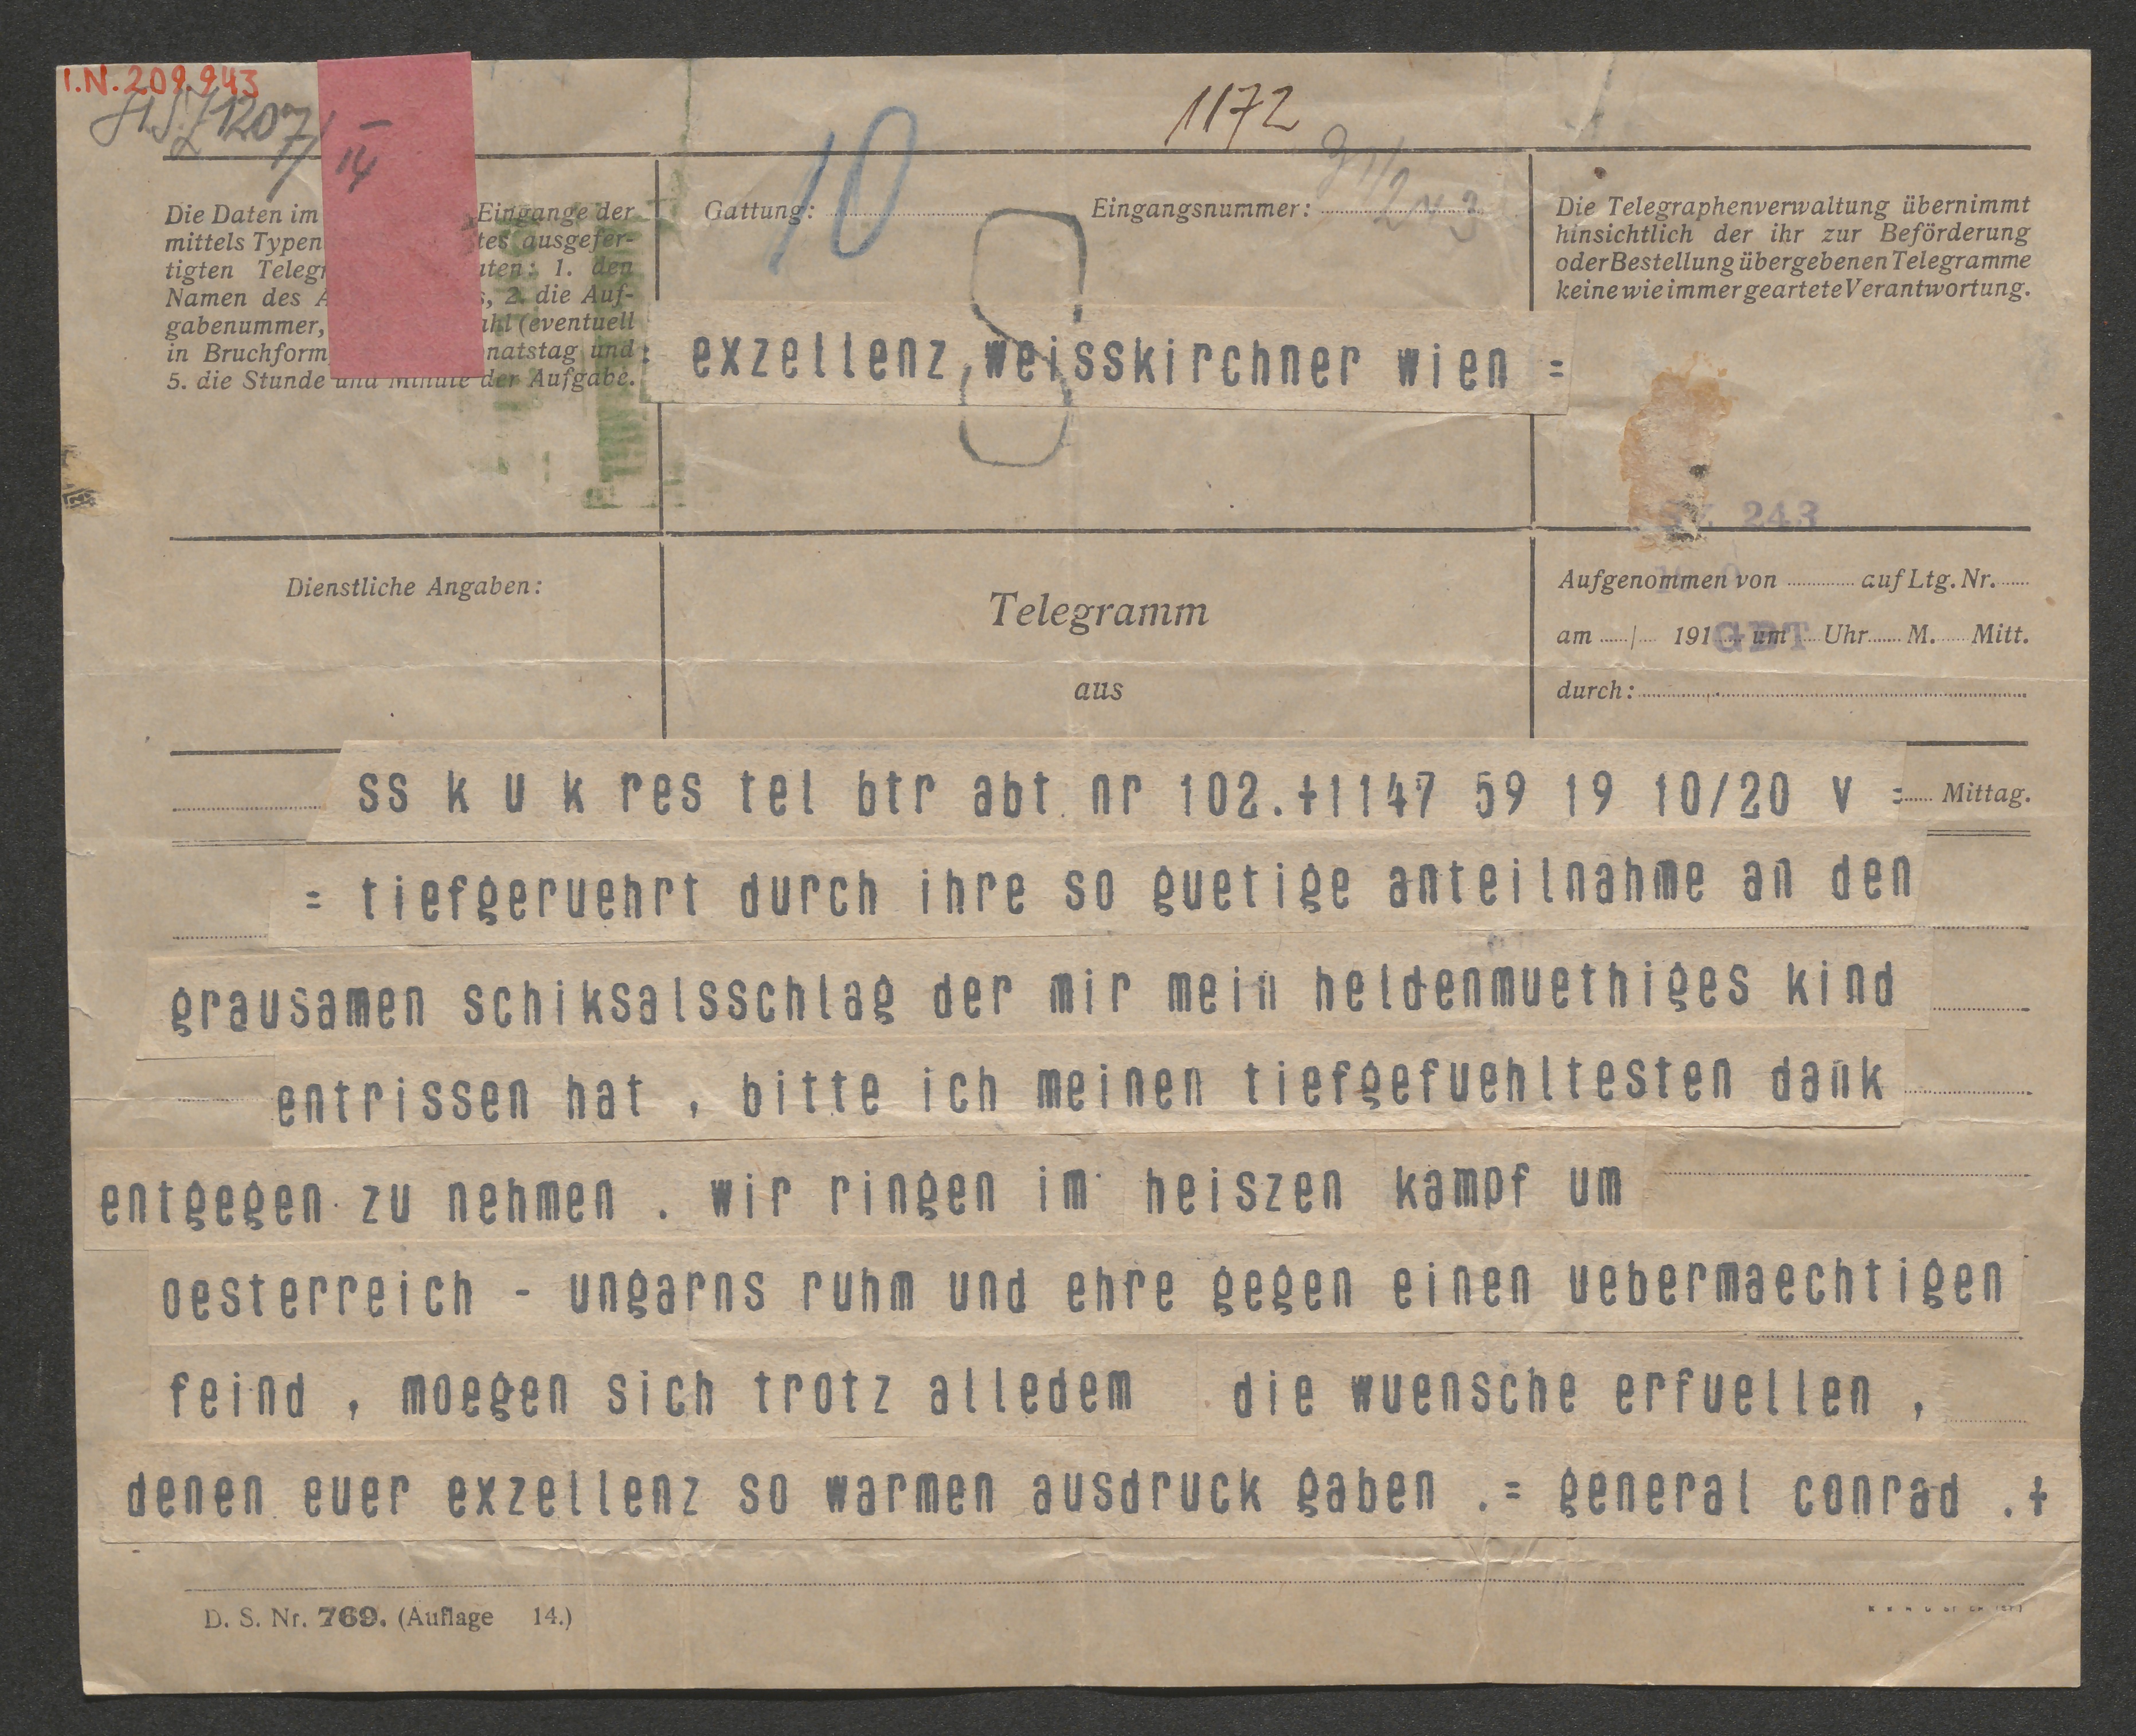 I.N. 209.943
1172
10
Die Daten im Eingange der
mittels Typen ausgefer-
tigten 1. den
Namen des 2. die Auf-
gabenummer, (eventuell
in Bruchform und
5. die Stunde und Minute der Aufgabe.
Gattung:
Eingangsnummer:
Die Telegraphenverwaltung übernimmt
hinsichtlich der ihr zur Beförderung
oder Bestellung übergebenen Telegramme
keine wie immer geartete Verantwortung.
: exzellenz, weisskirchner wien =
243
Dienstliche Angaben:
Telegramm
aus
Aufgenommen von auf Ltg. Nr.
am / 191 um Uhr M. Mitt.
GDT
durch:
ss k u k res tel btr abt nr 102.+1147 59 19 10/20 v =
Mittag.
= tiefgeruehrt durch ihre so guetige anteilnahme an den
grausamen schiksalsschlag der mir mein heldenmuethiges kind
entrissen hat , bitte ich meinen tiefgefuehltesten dank
entgegen zu nehmen . wir ringen im heiszen kampf um
oesterreich - ungarns ruhm und ehre gegen einen uebermaechtigen
feind , moegen sich trotz alledem die wuensche erfuellen ,
denen euer exzellenz so warmen ausdruck gaben .= general conrad .+
D. S. Nr. 769. (Auflage 14.)